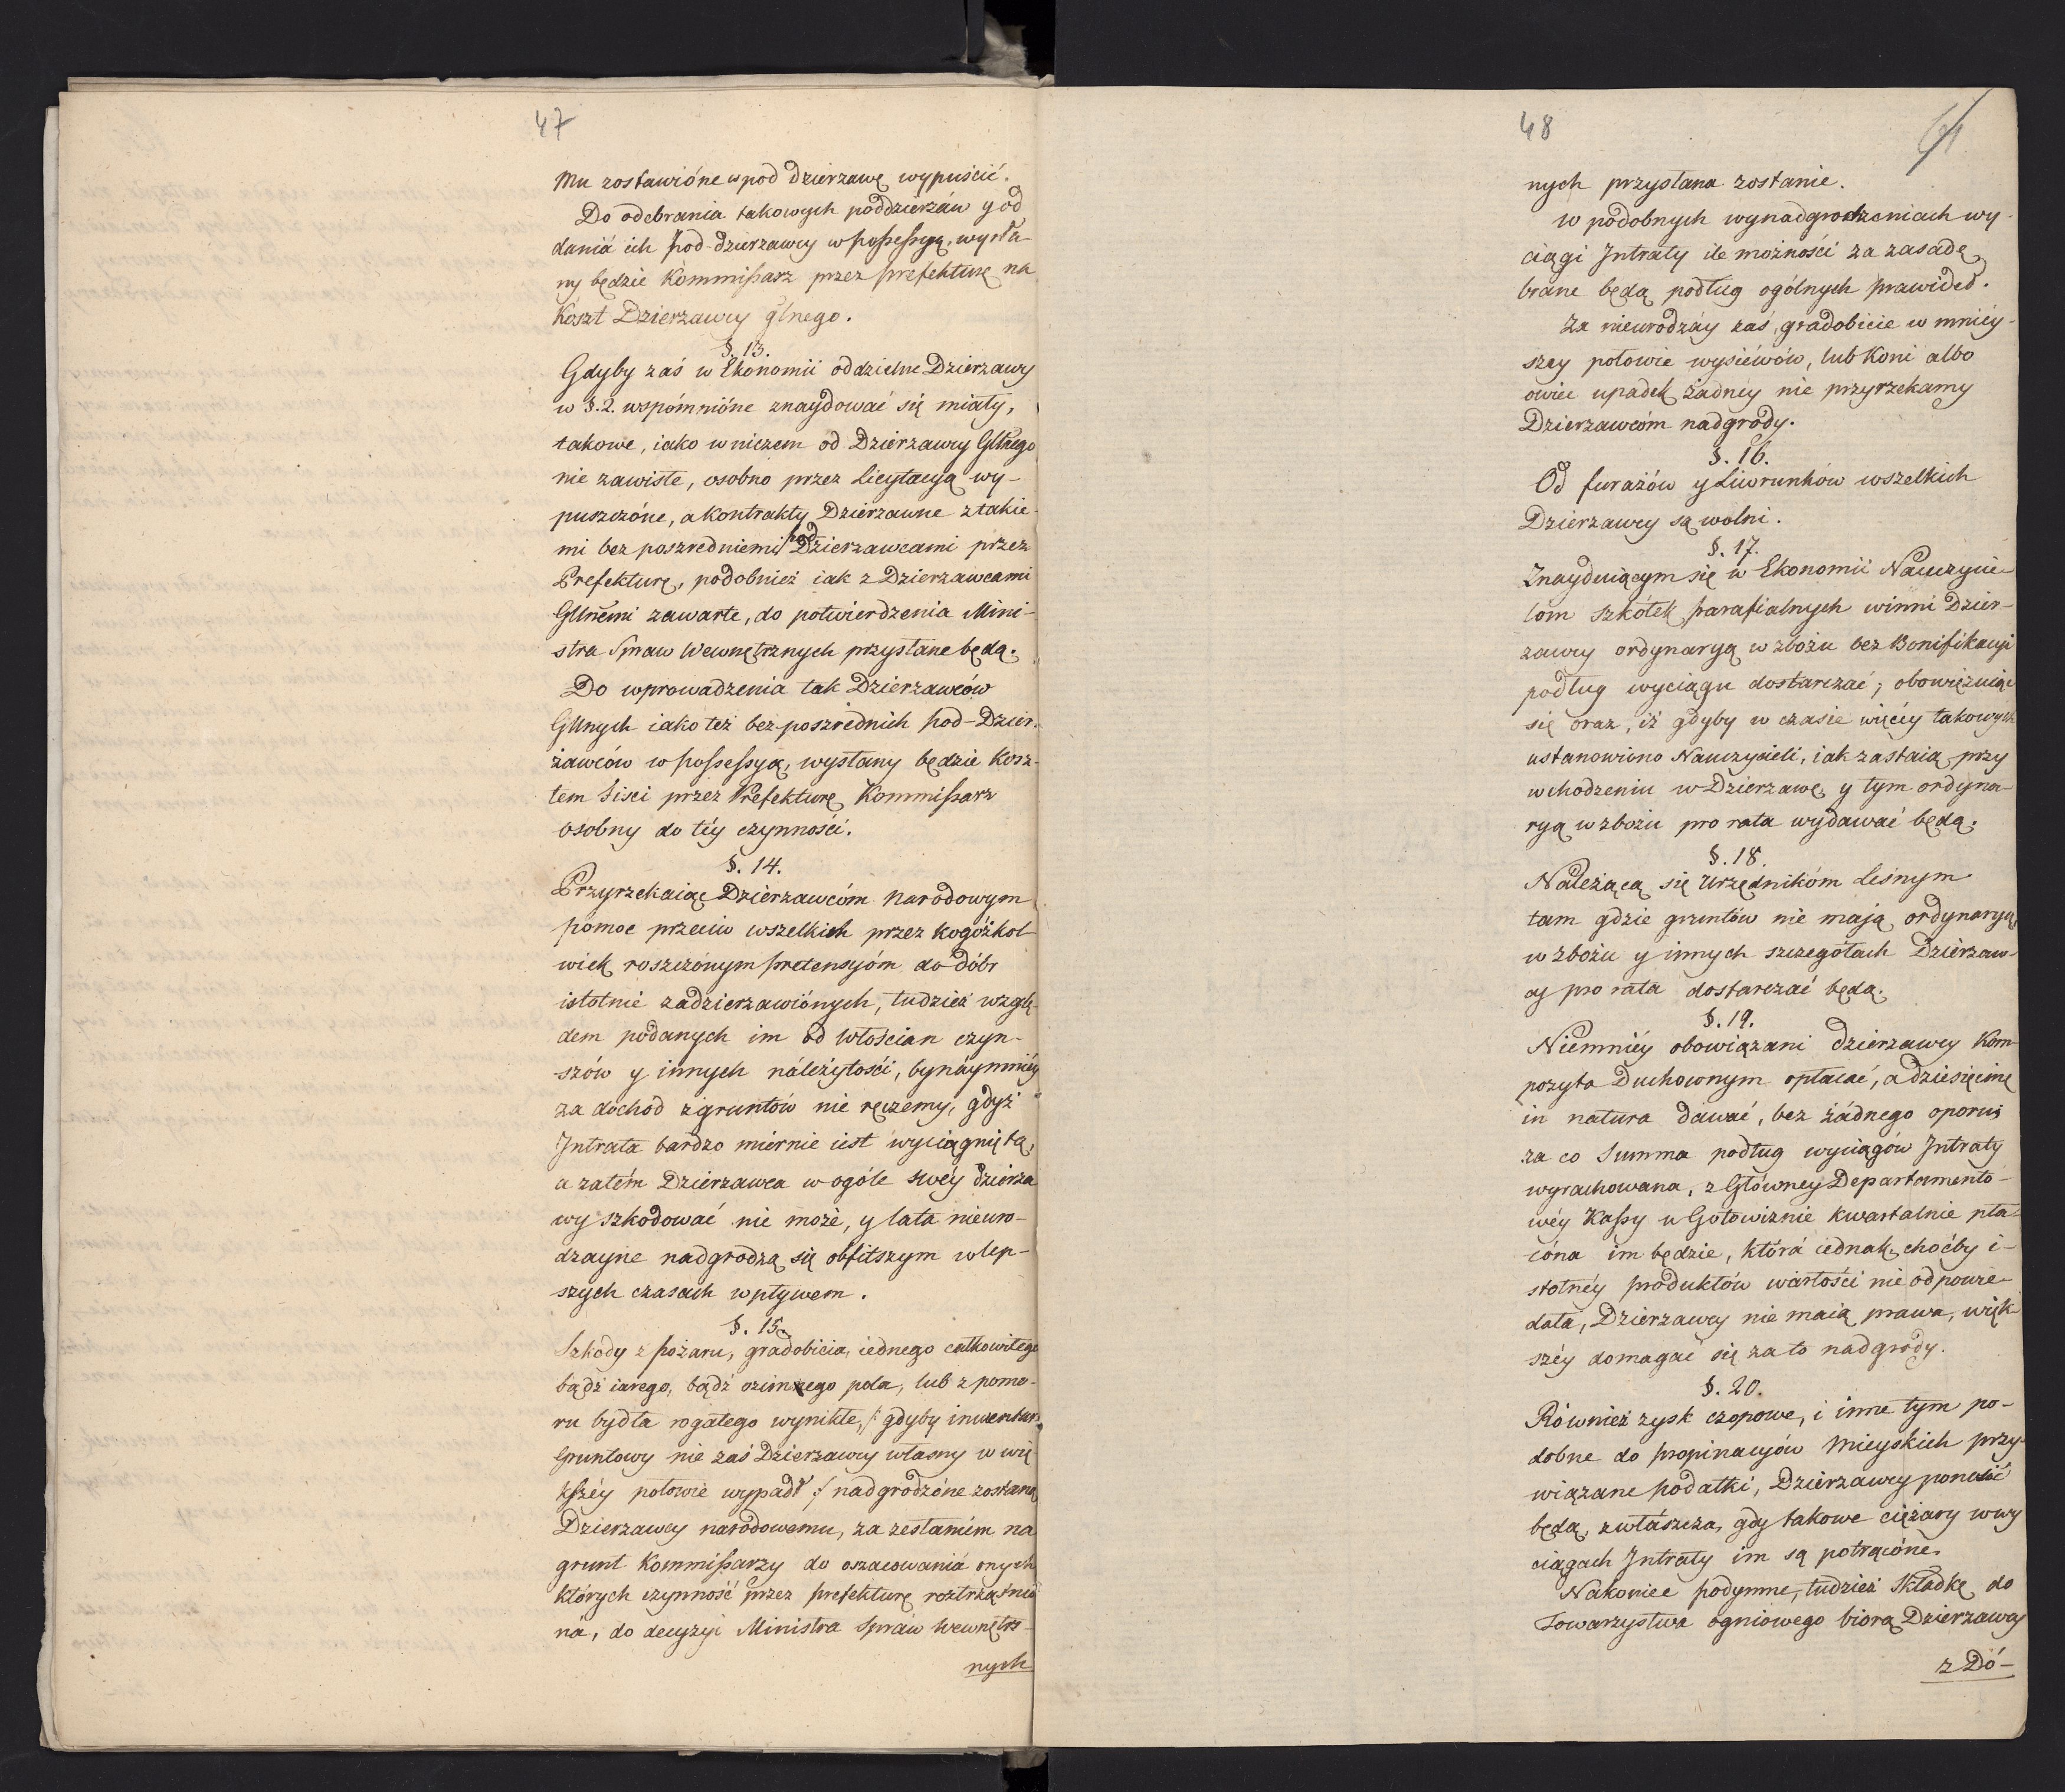 47
mu zostawióne w pod dzierzawę wypuścić.
Do odebrania takowych poddzierżáw y od
daniá ich pod-dzierzawcy w possessyą, wysła-
ny będzie Kommissarz przez prefekturę na
koszt Dzierzawcy głnego.
§. 13.
Gdyby zaś w Ekonomii oddzielne Dzierzawy
w §. 2. wspómnióne znaydować się miały,
takowe, iako w niczem od Dzierzawcy Głłnego
nie zawisłe, osobno przez Licytacyą wy-
puszczóne, a kontrakty Dzierzawne z takie-
mi bez poszredniemi pod Dzierzawcami przez
Prefekturę, podobnież iak z Dzierzawcami
Głłnemi zawarte, do potwierdzenia Mini-
stra Spraw Wewnętrznych przysłane będą.
Do wprowadzenia tak Dzierzawców
Głłnych iako też bez-poszrednich pod-Dzier-
żawców w possessyą, wysłany będzie kosz-
tem Iisci przez Prefekturę Kommissarz
osobny do téy czynności.
§. 14.
Przyrzekaiąc Dzierzawcóm Narodowym
pomoc przeciw wszelkich przez kogóżkol
wiek roszczónym pretensyóm do dóbr
istotnie zadzierzawiónych, tudzież wzglę-
dem podanych im od włościan czyn-
szów y innych náleżytości, bynáymniéy
za dochód z gruntów nie ręczemy, gdyż
Jntrata bardzo miernie iest wyciągniętą,
a zatém Dzierzawca w ogóle swéy dzierza
wy szkodować nie może, y lata nieuro-
dzayne nadgrodzą się obfitszym w lep-
szych czasach wpływem.
§. 15.
Szkody z pożaru, gradobicia, iednego całkowitego
bądź iarego, bądź ozimnego pola, lub z pomo-
ru bydła rogatego wynikłe, /: gdyby inwentarz
Gruntowy nie zaś Dzierzawcy własny w wię
kszéy połowie wypadł :/ nadgrodzóne zostaną
Dzierzawcy narodowemu, za zesłaniém na
grunt Kommissarzy do oszacowaniá onych
których czynność przez prefekturę roztrząśnio
ná, do decyzyi Ministra Spráw Wewnętrz-
nych
48
61
nych przysłana zostanie.
W podobnych wynadgrodzeniach wy-
ciągi Jntraty ile możności za zasadę
brane będą podług ogólnych prawideł.
Za nieurodzáy zaś, gradobicie w mniéy-
szey połowie wysiéwów, lub Koni albo
owiec upadek żadney nie przyrzekamy
Dzierzawcóm nadgródy.
§. 16.
Od furażów y Liwrunków wszelkich
Dzierzawcy są wolni.
§. 17.
Znayduiącym się w Ekonomii Nauczycie-
lom szkółek parafialnych winni Dzier-
zawcy ordynaryą w zbożu bez Bonifikacyi
podług wyciągu dostarczać; obowięzuiąc
się oraz, iż gdyby w czasie więcéy takowych
ustanowiono Nauczycieli, iak zastaią przy
wchodzeniu w Dzierzawę, y tym ordyna-
ryą w zbożu pro rata wydawać będą.
§. 18.
Należącą się Urzędnikóm Leśnym
tam gdzie gruntów nie mają, ordynaryą
w zbożu y innych szczegółach Dzierzaw-
cy pro rata dostarczać będą.
§. 19.
Niemniéy obowiązani dzierzawcy Kom-
pozyta Duchownym opłacać, a dziesięcinę
in natura dáwać, bez żádnego oporu;
za co Summa podług wyciągów Jntraty
wyrachowana, z Główney Departamento-
wéy Kassy w Gotowiznie kwartalnie pła-
cóna im będzie, którá iednak, choćby i-
stotnéy produktów wartości nie odpowie-
dała, Dzierzawcy nie maią prawa, więk-
széy domagać się za to nadgródy.
§. 20.
Również zysk czopowe, i inne tym po-
dobne do propinacyów Mieyskich przy-
wiązane podatki, Dzierzawcy ponosić
będą, zwłászcza, gdy takowe ciężary w wy
ciągach Jntraty im są potrącóne.
Nakoniec podymne, tudzież Składkę do
Towarzystwa ogniowego biorą Dzierzawcy
z Dó-